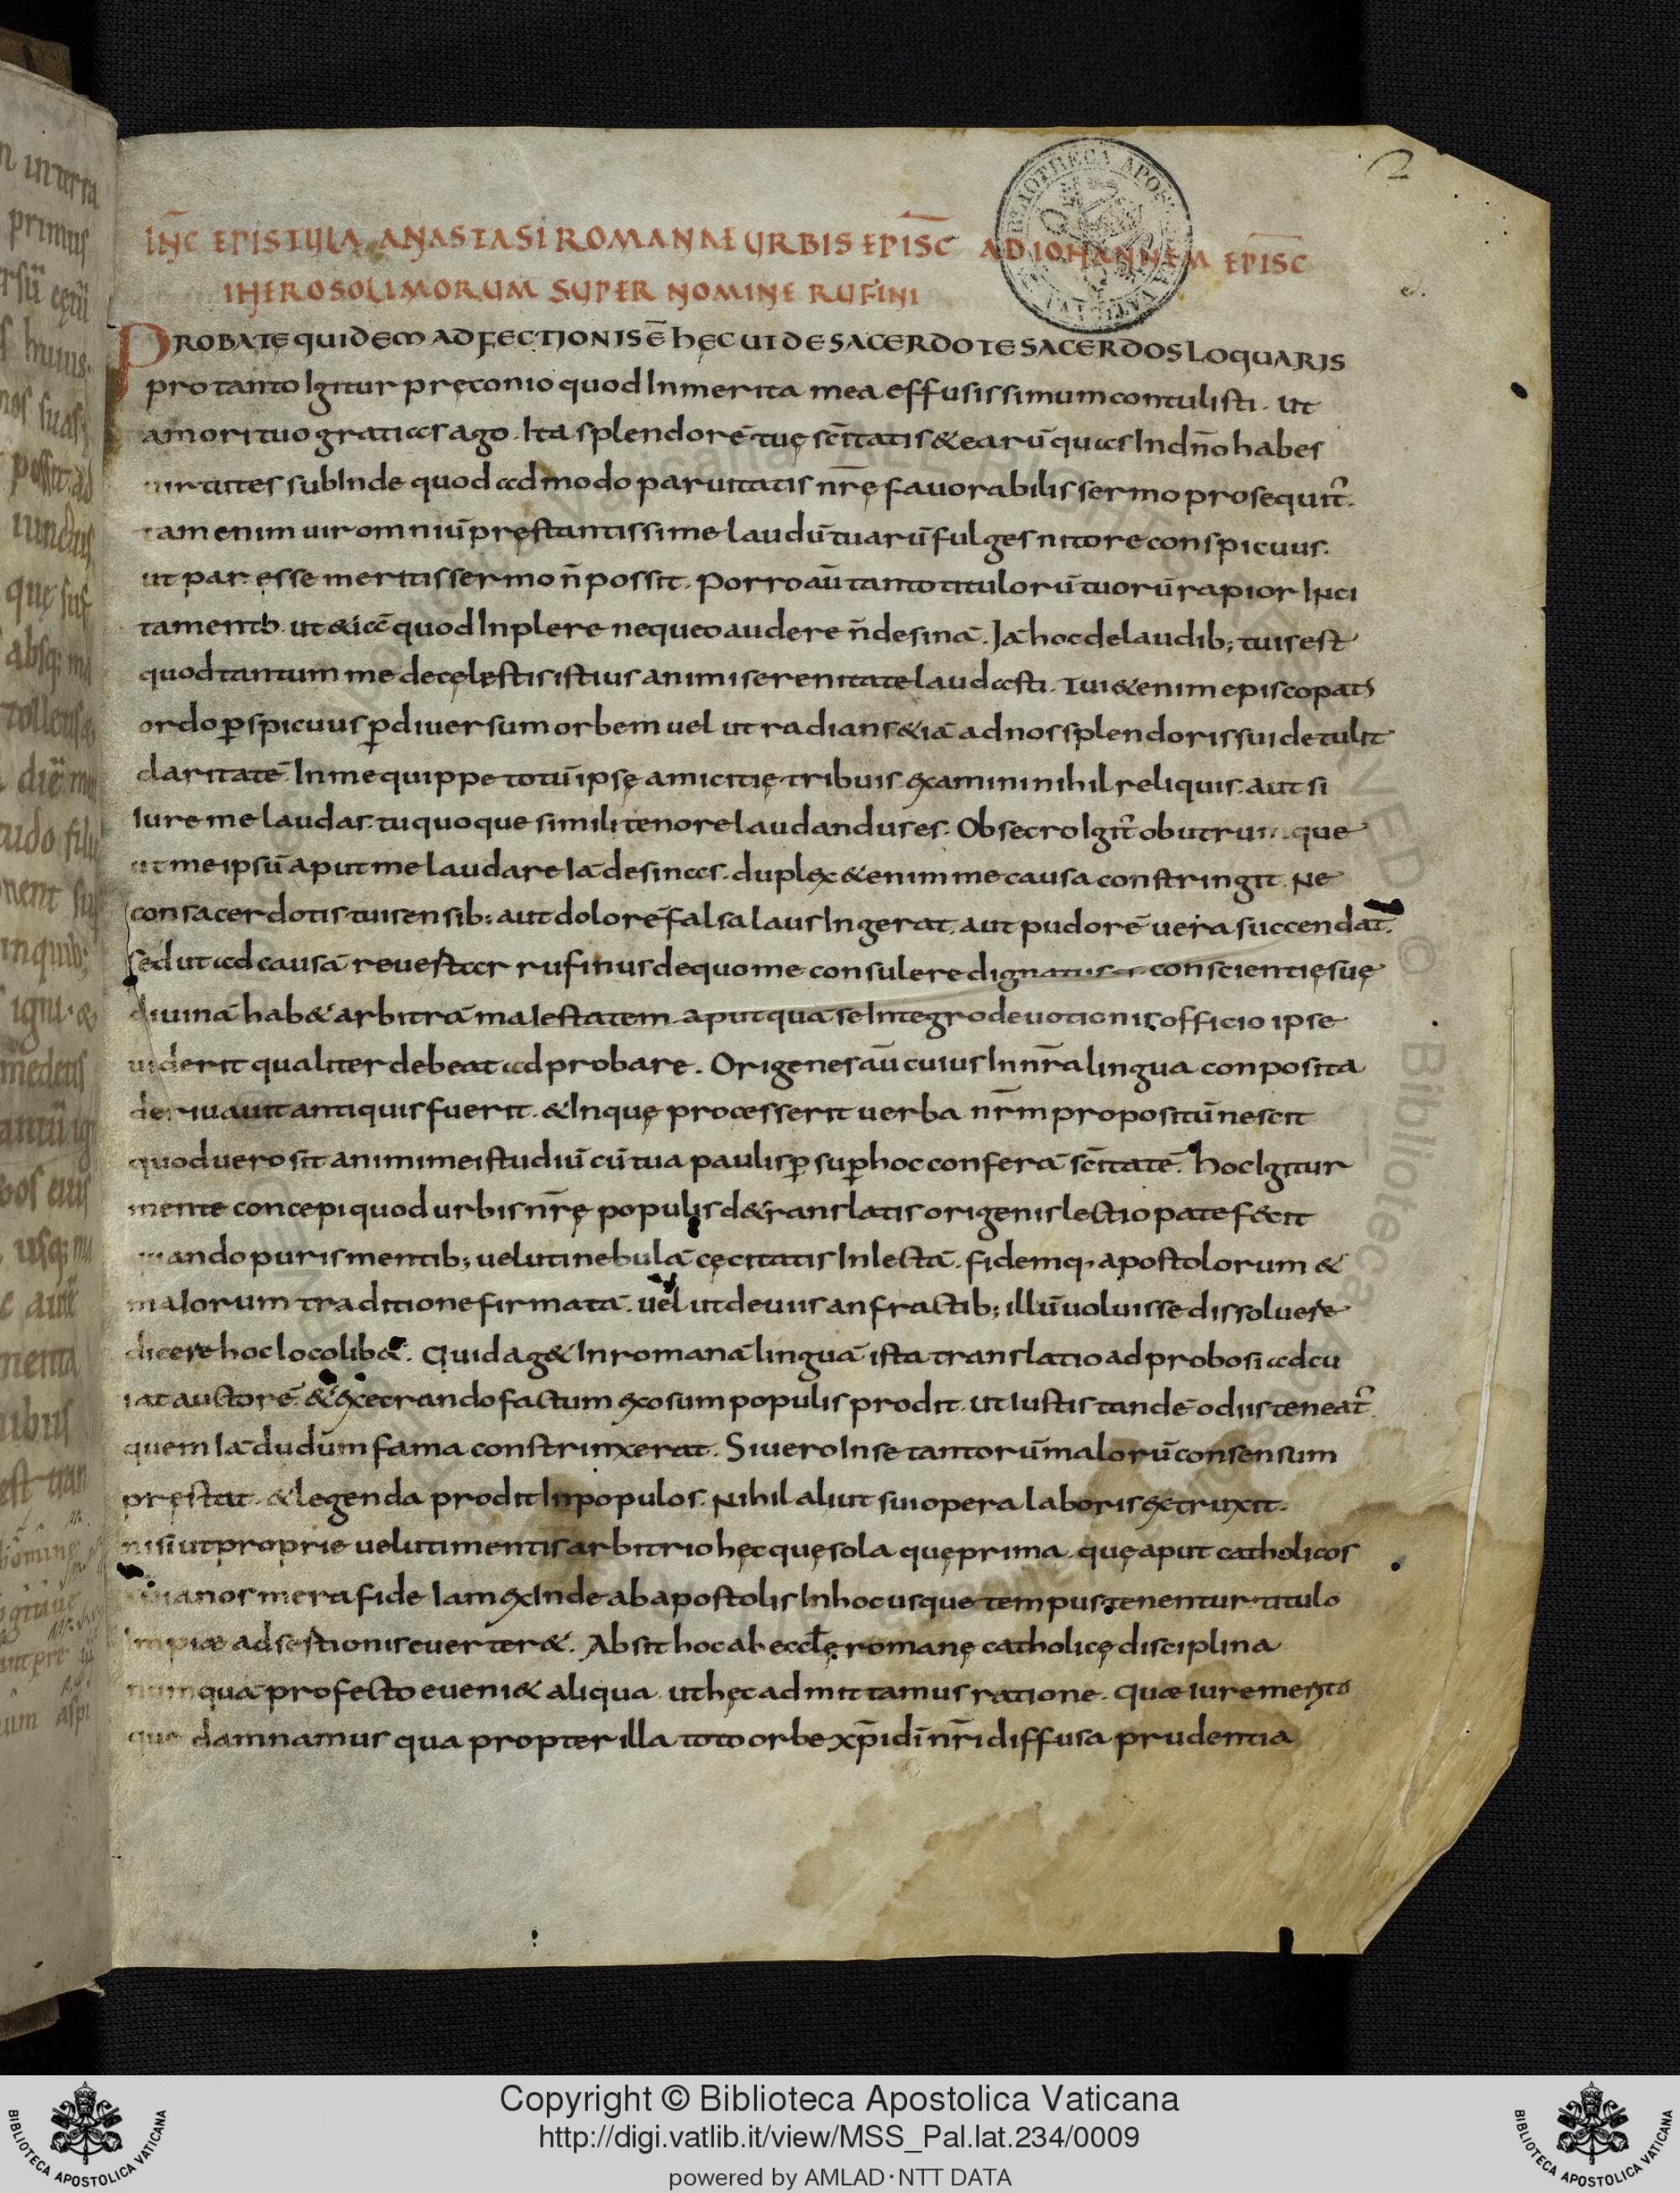 INC̄ EPISTULA ANASTASI ROMANAE URBIS EPISC̄ AD IOHANNEM EPISC̄
IHEROSOLIMORUM SUPER NOMINE RUFINI
PROBATE QUIDEM ADFECTIONIS Ē HĘC UT DE SACERDOTE SACERDOS LOQUARIS
pro tanto Igitur pręconio quod In merita mea effusissimum contulisti. ut
amori tuo gratias ago. Ita splendorē tuę sc̄itatis & earū quas In dn̄o habes
uirtutes subInde quod ad modo paruitatis nr̄ę fauorabilis sermo prosequit̄.
tam enim uir omniū pręstantissime laudū tuarū fulges nitore conspicuus.
ut par esse meritis sermo n̄ possit. Porro aū tanto titulorū tuorū rapior Inci
tamento. ut & iā quod Inplere nequeo audere n̄ desinā. Jā hoc de laudib; tuis est
quod tantum me de cęlestis istius animi serenitate laudasti. Tui & enim episcopatus
ordo ꝑspicuus ꝑ diuersum orbem uel ut radians & iā ad nos splendoris sui detulit
claritatē. In me quippe totū ipsę amicitię tribuis ęxamini nihil reliquis. aut si
Iure me laudas. tu quoque simili tenore laudandus es. Obsecro Igit̄ ob utrumque
ut me ipsū aput me laudare Iā desinas. duplęx & enim me causa constringit. Ne
consacerdotis tui sensib; aut dolorē falsa laus Ingerat. aut pudorē uera succendat.
sed ut ad causā reuestar rufinus de quo me consulere dignatus conscientię suę
diuinā hab& arbitrā maIestatem. aput quā se Integro deuotionis officio ipse
uiderit qualiter debeat adprobare. Origenes aū cuius In nr̄a lingua conposita
deriuauit antiquis fuerit. & In quę processerit uerba nr̄m propositū nescit
quod uero sit animi mei studiū cū tua paulisꝑ suꝑ hoc conferā sc̄itatē. hoc Igitur
mente concepi quod urbis nr̄ę populis d& translatis origenis lectio patefecit
quando puris mentib; ueluti nebulā cęcitatis Inlectā. fidemq; apostolorum &
maIorum traditione firmatā. uel ut deuiis anfractib; illū uoluisse dissoluere
dicere hoc loco lib&. Quid ag& In romanā linguā ista translatio adprobo si adcu
sat auctorē & ęxecrando factum ęxosum populis prodit. ut iustis tandē odiis teneat̄
quem Iā dudum fama constrinxerat. Si uero In se tantorū malorū consensum
pręstat. & legenda prodit In populos. Nihil aliut sui opera laboris ęxtruxit.
nisi ut proprie ueluti mentis arbitrio hęc quę sola quę prima. quę aput catholicos
ianos mera fide Iam ęxInde ab apostolis In hoc usque tempus tenentur titulo
Impiae adsestionis euerter&. Absit hoc ab eccl̄ę romanę catholicę disciplina
numquā profecto eueni& aliqua. ut hęc admittamus ratione. quae iure merito
que damnamus qua propter illa toto orbe xp̄i dī nr̄i diffusa prudentia
Copyright © Biblioteca Apostolica Vaticana
http://digi.vatlib.it/view/MSS_Pal.lat.234/0009
powered by AMLAD·NTT DATA
BIBLIOTECA APOSTOLICA VATICANA
BIBLIOTECA APOSTOLICA VATICANA